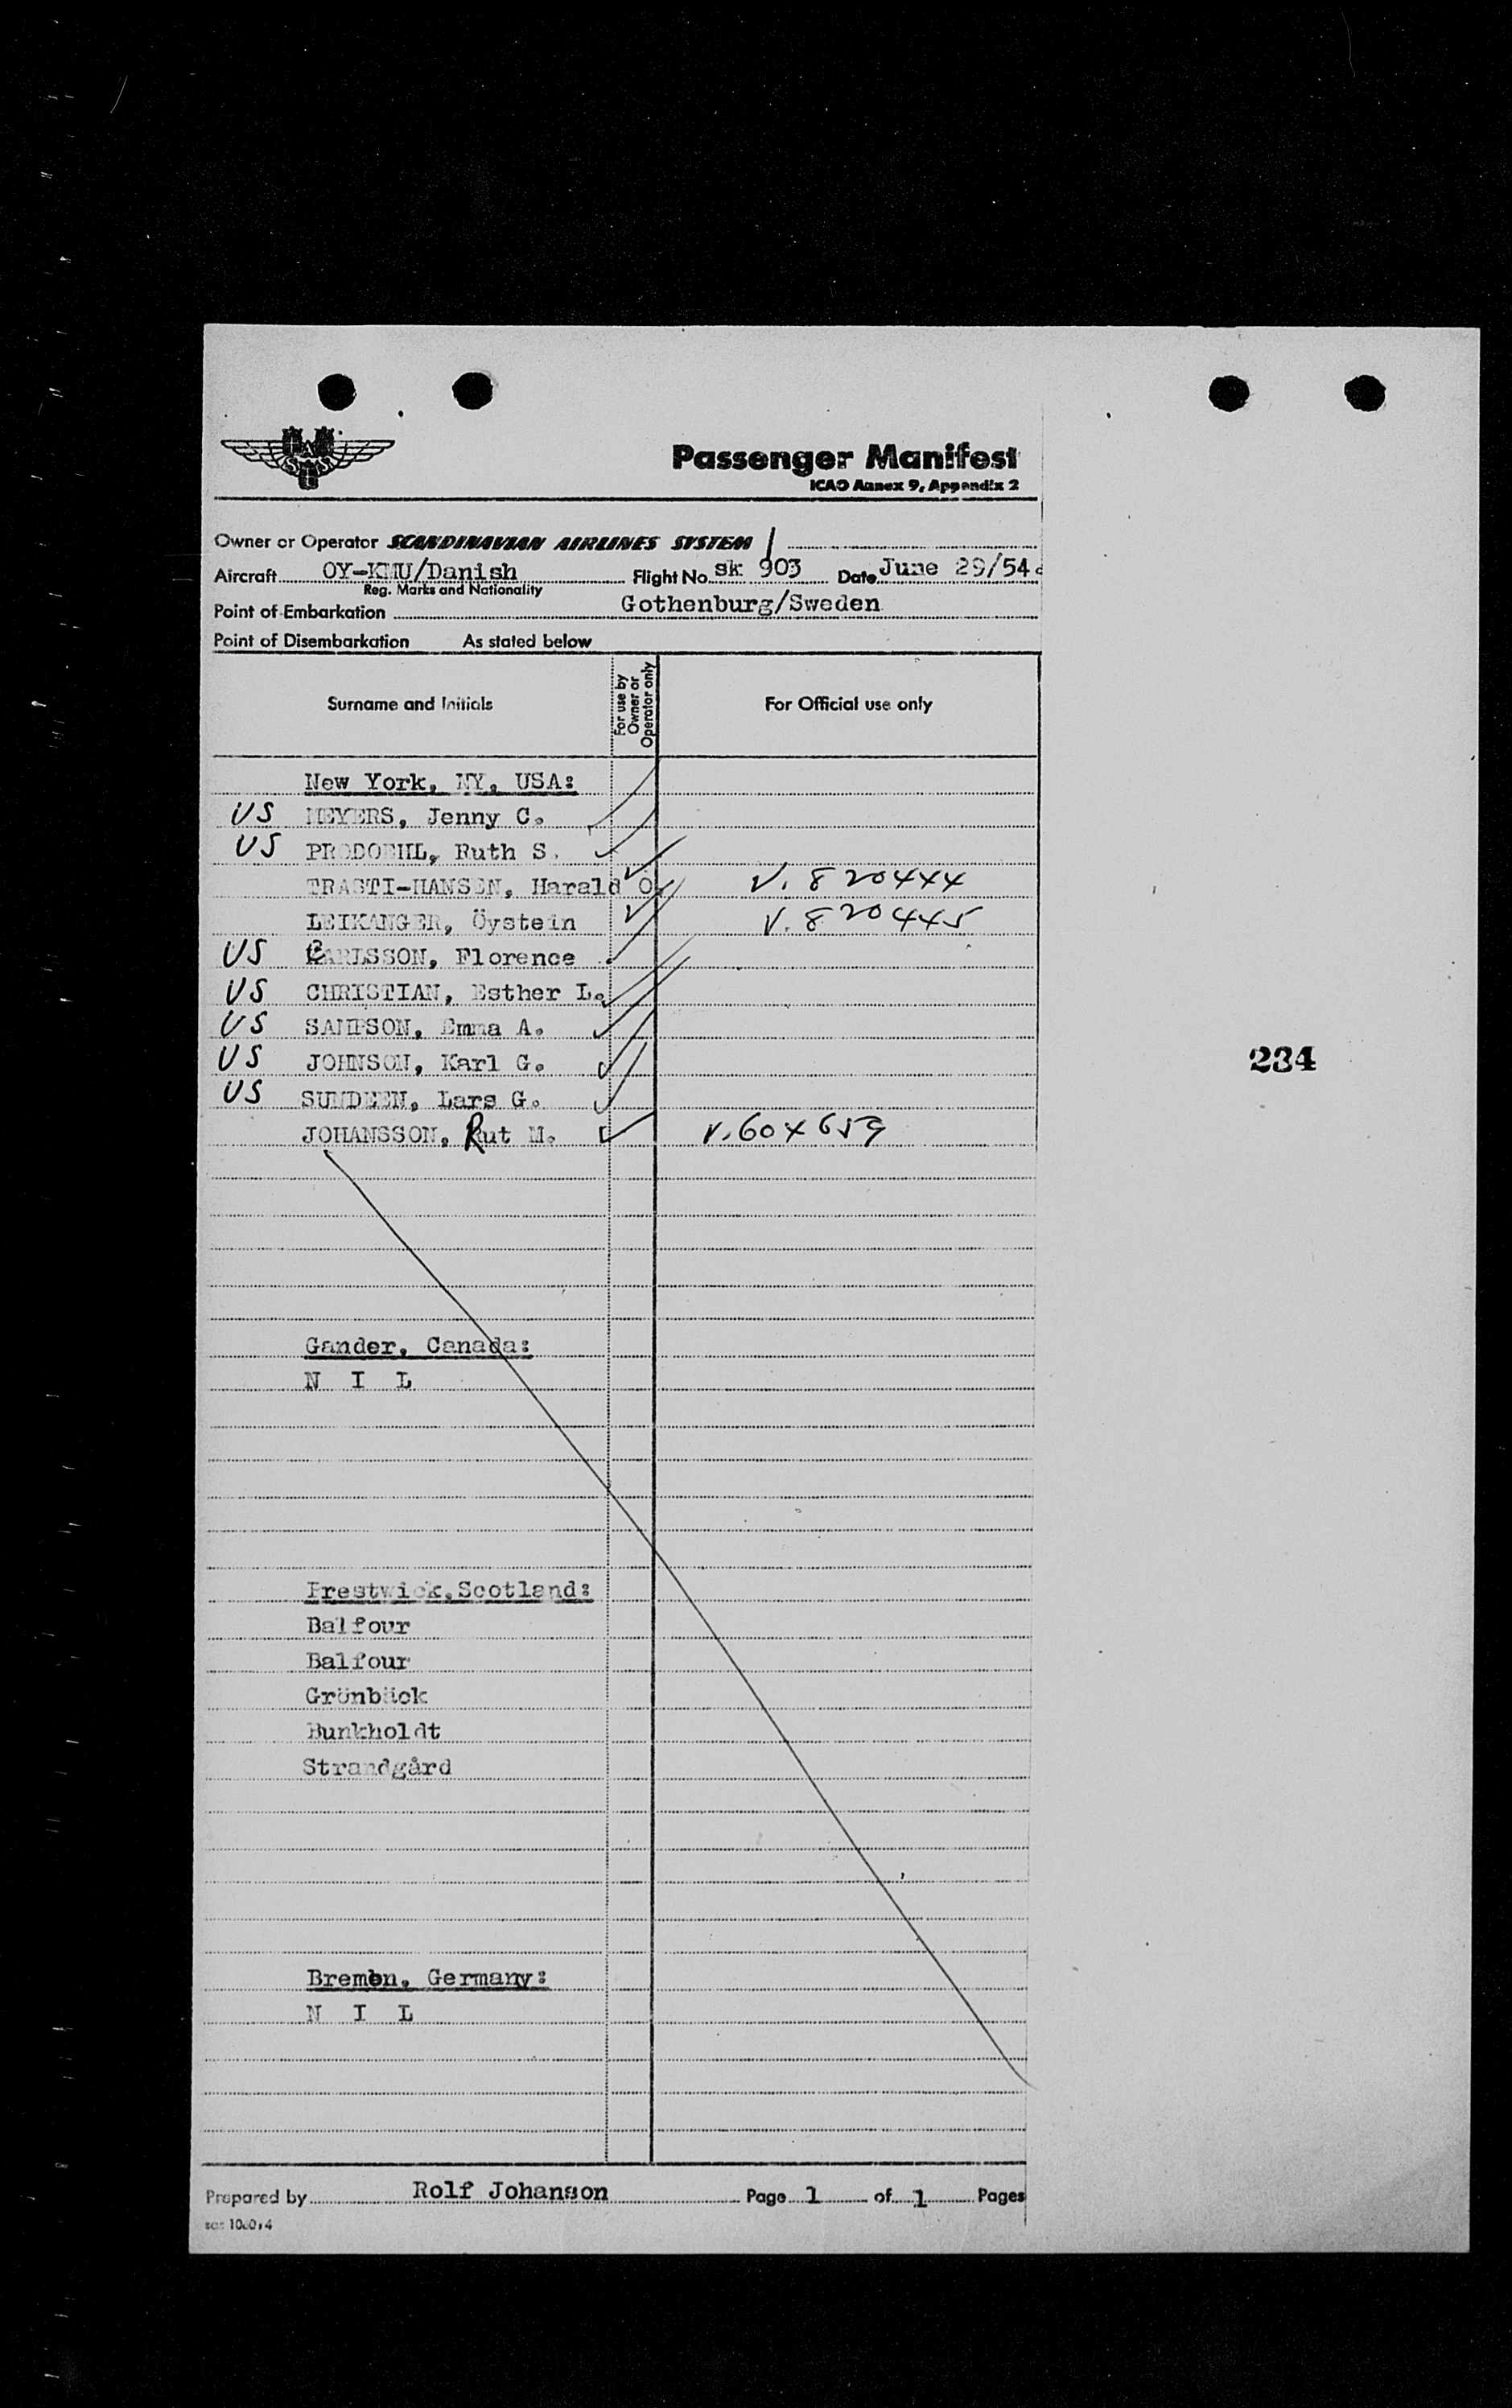 SAS
Passenger Manifest
ICAO Annex 9, Appendix 2
Owner or Operator SCANDINAVIAN AIRLINES SYSTEM
Aircraft OY-KMU/Danish Flight No. sk 903 Date June 29/54.
Reg. Marks and Nationality
Point of Embarkation Gothenburg/Sweden
Point of Disembarkation As stated below
Surname and Initials For use by Owner or Operator only For Official use only
New York, NY, USA:
US MEYERS, Jenny C.
US PRODOEHL, Ruth S.
TRASTI-HANSEN, Harald O. V. 820444
LEIKANGER, Öystein V. 820445
US CARLSSON, Florence
US CHRISTIAN, Esther L.
US SAMPSON, Emma A.
US JOHNSON, Karl G.
234
US SUNDEEN, Lars G.
JOHANSSON, Rut M. V. 604659
Gander, Canada:
N I L
Prestwick,Scotland:
Balfour
Balfour
Grönbäck
Bunkholdt
Strandgård
Bremen, Germany:
N I L
Prepared by Rolf Johanson Page 1 of 1 Pages